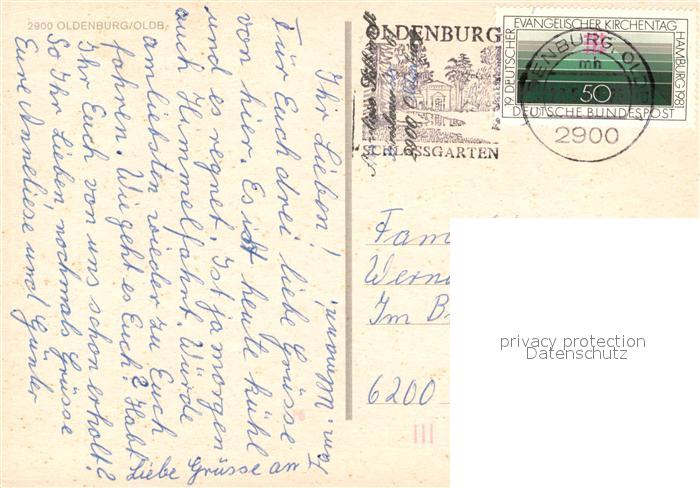 2900 OLDENBURG/OLDB.
Ihr Lieben!
Für Euch drei liebe Grüsse
von hier. Es ist heute kühl
und es regnet. Ist ja morgen
auch Himmelfahrt. Würde
amliebsten wieder zu Euch
fahren. Wie geht es Euch? Habt
Ihr Euch von uns schon erholt?
So Ihr Lieben, nochmals Grüsse
Eure Anneliese und Günter
Liebe Grüsse an
Fam.
OLDENBURG
SCHLOSSGARTEN
19. DEUTSCHER EVANGELISCHER KIRCHENTAG HAMBURG 1981
50
DEUTSCHE BUNDESPOST
OLDENBURG, OLDB
mh
2900
Fam
Wern
Im B
6200
privacy protection
Datenschutz